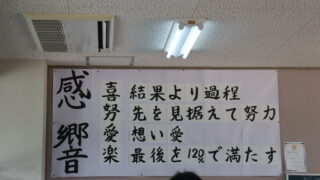 感響
喜 結果より過程
努 先を見据えて努力
愛 想い愛
楽 最後を120%で満たす